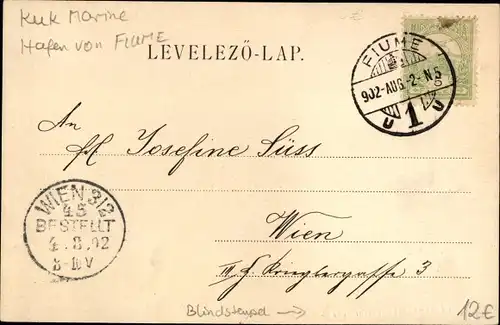 KuK Marine
Hafen von FIUME
LEVELEZŐ-LAP.
FIUME
902-AUG.-2-N5
U 1 U
An
Josefine Süss
WIEN 3/2
45
BESTELLT
4.8.02
Wien
3
Blindstempel →
12€